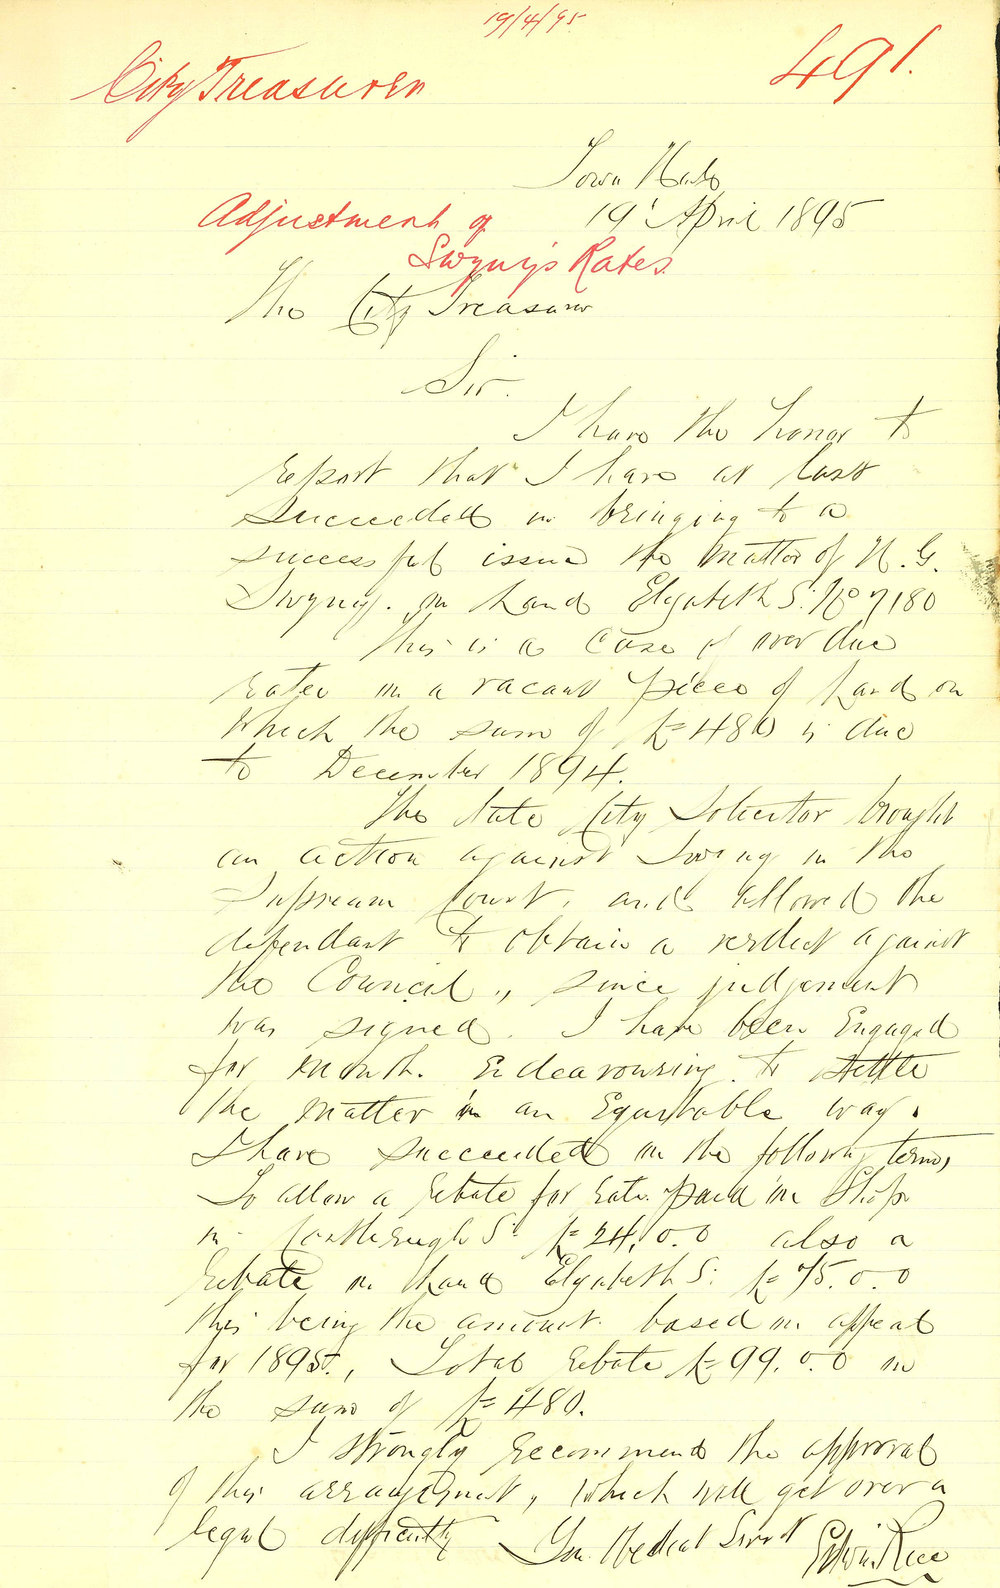 19/4/95
City Treasurer
491.
Town Hall
19' April 1895
Adjustment of
Swyny's Rates
The City Treasurer
Sir.
I have the honor to
report that I have at last
succeeded in bringing to a
successful issue the matter of H. G.
Swyny. on Land Elizabeth St. No 7180
This is a case of over due
rates on a vacant piece of land on
which the sum of £480 is due
to December 1894.
The late City Solicitor brought
an action against Swyny in the
Supream Court, and allowed the
defendant to obtain a verdict against
the Council, since judgement
was signed. I have been engaged
for month. endeavouring to settle
the matter in an Equitable way.
I have succeeded on the following terms,
To allow a rebate for rates paid on Shop
in St £24.0.0 also a
rebate on Land Elizabeth St: £75.0.0
this being the amount based on appeal
for 1895., Total rebate £99.0.0 on
the sum of £480.
I strongly recommend the approval
of this arrangement, which will get over a
legal difficulty
Edwin Rice